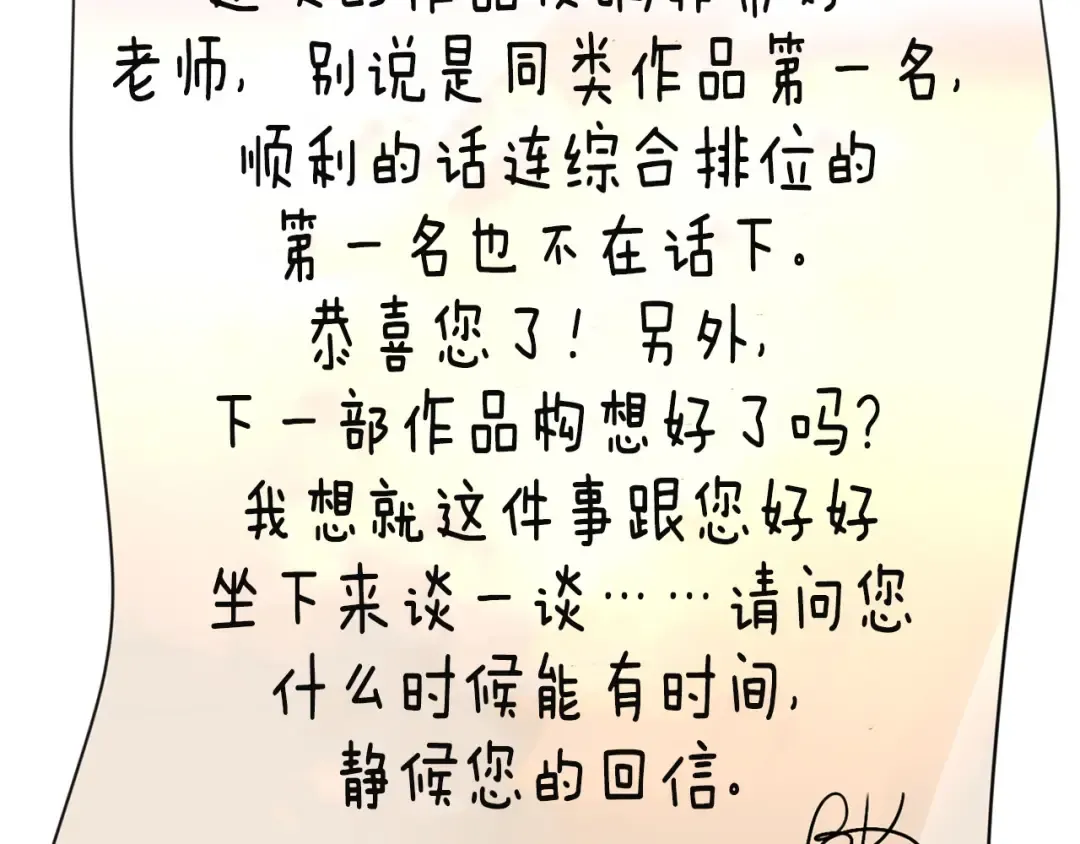 的作品反响非常好
老师，别说是同类作品第一名，
顺利的话连综合排位的
第一名也不在话下。
恭喜您了！另外，
下一部作品构想好了吗？
我想就这件事跟您好好
坐下来谈一谈……请问您
什么时候能有时间，
静候您的回信。
BK